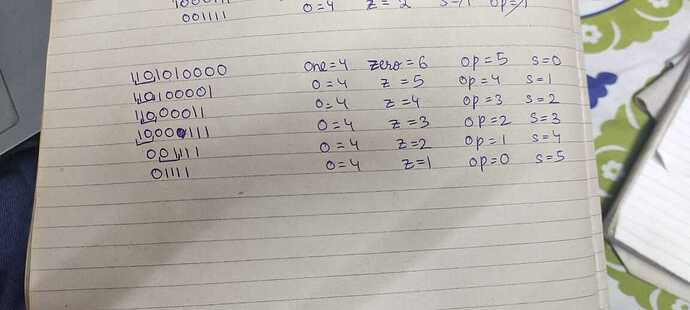 001111 0=4 z=2 op=1
1101010000 one=4 zero=6 op=5 s=0
110100001 0=4 z=5 op=4 s=1
11000011 0=4 z=4 op=3 s=2
1000111 0=4 z=3 op=2 s=3
001111 0=4 z=2 op=1 s=4
01111 0=4 z=1 op=0 s=5